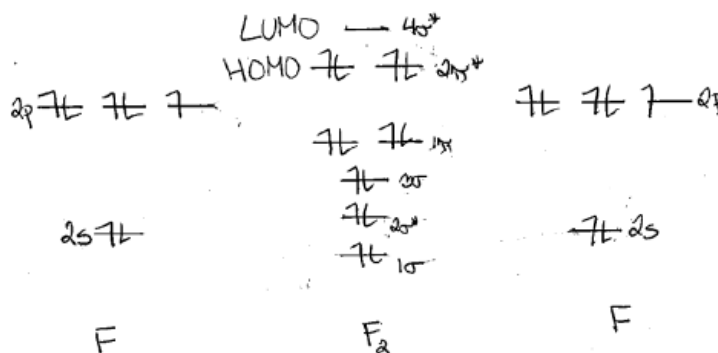 LUMO 4σ*
HOMO 2π*
2p 2p
1π
3σ
2σ*
2s 2s
1σ
F F₂ F